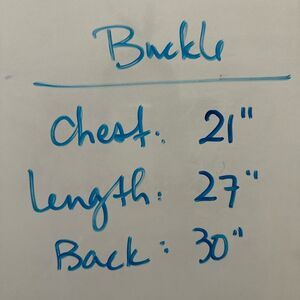 Buckle
Chest: 21"
Length: 27"
Back: 30"